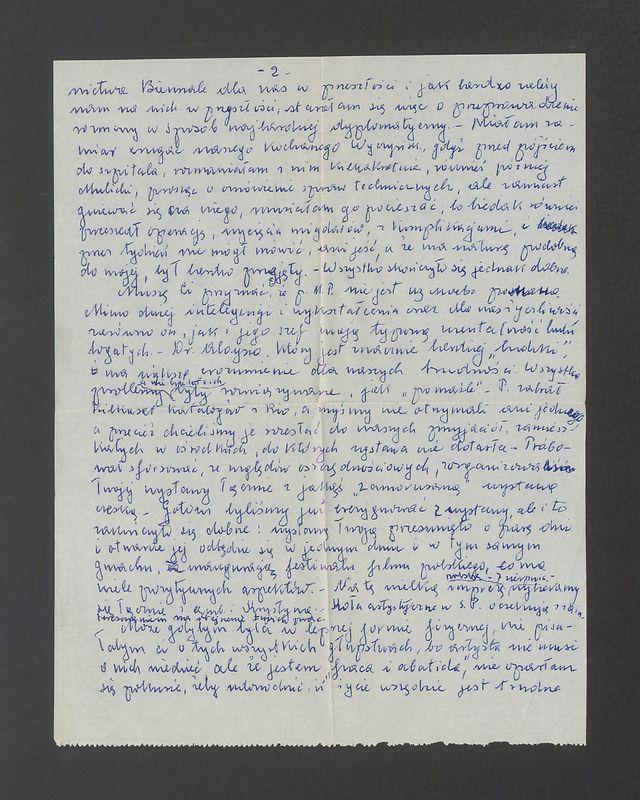 - 2 -
nictwa Biennale dla nas w przeszłości i jak bardzo zależy
nam na nich w przyszłości, starałam się więc o przeprowadzenie
rozmowy w sposób najbardziej dyplomatyczny. - Miałam za-
miar naszego kochanego gdyż przed pójściem
do szpitala, rozmawiałam z nim kilkakrotnie, również później
prosząc o omówienie spraw technicznych, ale zamiast
gniewać się na niego, musiałam go pocieszać, bo biedak również
przeszedł operację, wycięcia migdałów, z komplikacjami, i
przez tydzień nie mógł mówić, ani jeść, a że ma naturę podobną
do mojej, był bardzo przejęty. - Wszystko skończyło się jednak dobrze.
Muszę Ci przyznać, że p. M.P. nie jest
Mimo dużej inteligencji i wykształcenia oraz dla nas życzliwości
zarówno on, jak i jego szef mają typową mentalność ludzi
bogatych. - Dr. Aloysio, który jest znacznie bardziej "ludzki",
ma większe zrozumienie dla naszych trudności. Wszystkie
problemy były rozwiązywane jak "pomaśle". P. zabrał
kilkaset katalogów z Rio, a myśmy nie otrzymali ani jednego,
a przecież chcieliśmy je rozesłać do naszych przyjaciół, zamiesz-
kałych w ośrodkach, do których wystawa nie dotarła. - Próbo-
wał sforsować, ze względów oszczędnościowych, zorganizowanie
Twojej wystawy łącznie z jakąś wystawą
czeską. - Gotowi byliśmy już zrezygnować z wystawy, ale i to
zakończyło się dobrze: wystawę Twoją przesunięto o parę dni
i otwarcie jej odbędzie się w jednym dniu i w tym samym
gmachu, inauguracją festiwalu filmu polskiego, co ma
wiele pozytywnych aspektów. - Na tę wielką imprezę wybieramy
się łącznie z amb. i Krystyną. - Koła artystyczne w S.P. oczekują z
Może gdybym była w lepszej formie fizycznej, nie pisa-
łabym Ci o tych wszystkich głupstwach, bo artysta nie musi
o nich wiedzieć, ale że jestem "fraca i abatida", nie oparłam
się pokusie, żeby udowodnić, iż życie wszędzie jest trudne